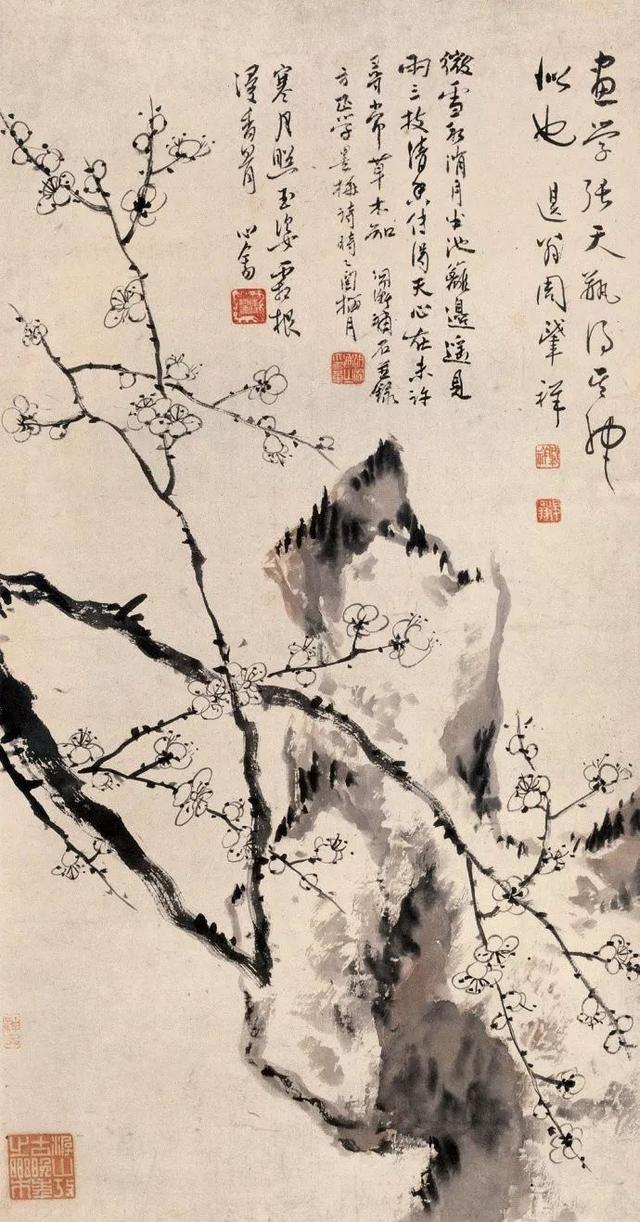 畫學張天瓶得其神
似也 退翁周肇祥
微雪初消月半池籬邊遙見
兩三枝清香傳得天心在未許
尋常草木知 補石並錄
方正學墨梅詩時乙 月
寒月照玉姿霜根
浸香骨 心畬